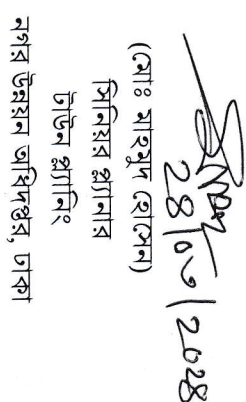 ২৪/০৩/২০২৪
(মোঃ মাহমুদ হোসেন)
সিনিয়র প্ল্যানার
টাউন প্ল্যানিং
নগর উন্নয়ন অধিদপ্তর, ঢাকা